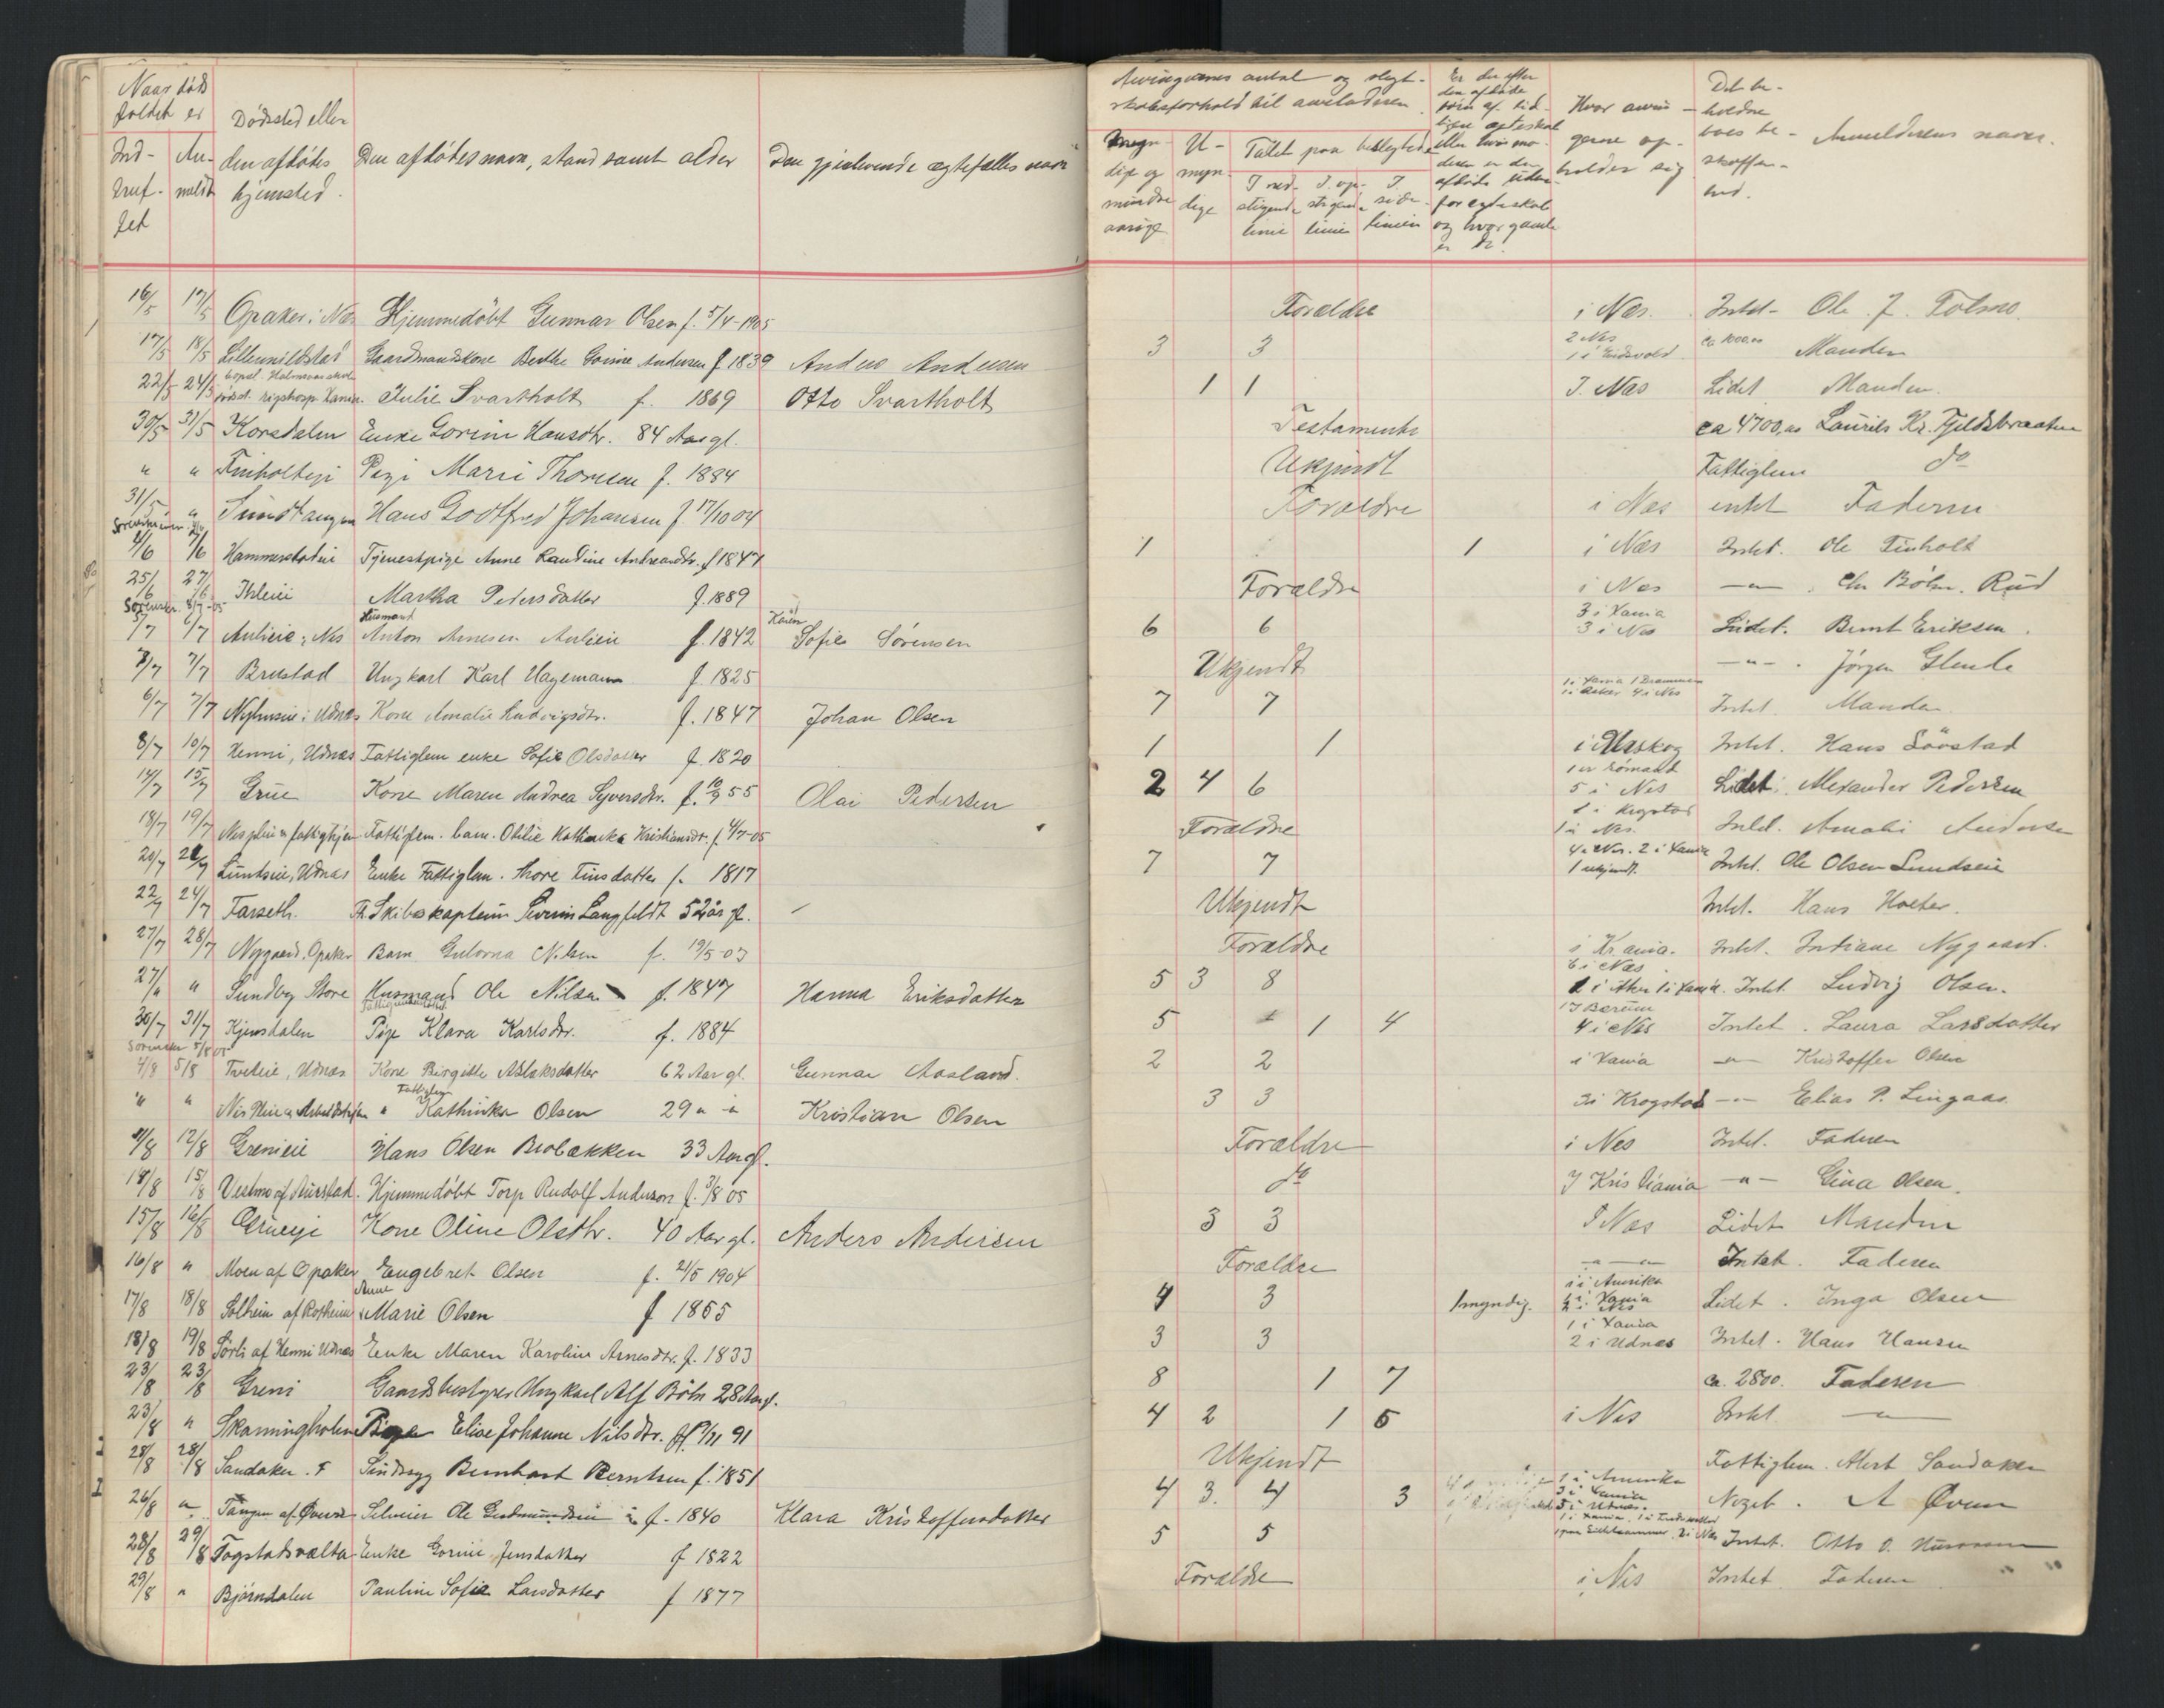 Naar døds
faldet er
Ind-
truf-
fet
An-
meldt
Dødssted eller
den afdødes
hjemsted.
Den afdødes navn, stand samt alder
Den gjenlevende ægtefælles navn
Arvingernes antal og slegt-
skabsforhold til arveladeren
Myn-
dige og
mindre
aarige
U-
myn-
dige
Talet paa beslegtede
I ned-
stigende
linie
I op-
stigende
linie
I
side-
linien
Er der efter
den afdøde
børn af tid-
ligere egteskab
eller hvis mo-
deren er den
afdøde uden-
for egteskab
og hvor gamle
er de.
Hvor arvin-
gerne op-
holder sig
Det be-
holdne
boes be-
skaffen-
hed.
Anmelderens navn.
16/5 17/5 Opaker i Nes Hjemmedøbt Gunnar Olsen f. 5/4-1905 Forældre i Nes. Intet- Ole J. Tolmo
17/5 18/5 Gaardmandskone Berthe Gorine Andersen f 1839 Anders Andersen 3 3 2 Nes 1 i Eidsvold ca 1000,00 Manden
22/5 24/5 dødsst. rigshosp. Xania. Julie Svartholt f. 1869 Otto Svartholt 1 1 I Nes Lidet Manden.
30/5 31/5 Korsdalen Enke Gorine Hansdtr. 84 Aar gl. Testamente ca 4700,00 Laurits Kr. Fjeldbraaten
" " Finholteje Pige Marie Thoresen f. 1884 Ukjendt Fattiglem do
31/5 " Sundtangen Hans Godtfred Johansen f. 17/10 04 Forældre i Nes intet Faderen
4/6 7/6 Tjenestpige Anne Laudine Andreasdtr. f 1847 1 1 i Nes Intet. Ole Finholt
25/6 27/6 Ihleie Martha Pedersdatter f. 1889 Forældre i Nes -"- Chr Böhn. Rud
Sorenskr. 8/7-05
5/7 6/7 Aulieie i Nes Husmand Anton Arnesen Aulieie f. 1842 Karen Sofie Sørensen 6 6 3 i Xania 3 i Nes Lidet. Bernt Eriksen.
3/7 7/7 Brustad Ungkarl Karl Hagemann f. 1825 Ukjendt -"-. Jørgen Glende
6/7 7/7 Nyhuseie i Udnes Kone Amalie Ludvigsdtr. f. 1847 Johan Olsen 7 7 1 i Xania 1 Drammen 1 i Asker 4 i Nes Intet. Manden.
8/7 10/7 Henni, Udnes Fattiglem enke Sofie Olsdatter f. 1820 1 1 i Urskog Intet. Hans Løvstad
14/7 15/7 Grue Kone Maren Andrea Syversdtr. f. 10/9 55 Olai Pedersen 2 4 6 1 er sömand 5 i Nes Lidet. Alexander Pedersen
18/7 19/7 Nes pleie & fattighjem Fattiglem. barn. Otilie Kathinka Kristiansdr. f. 4/7-05 Forældre 1 i Krogstad 1 i Nes. Intet. Amalie Andersen
20/7 21/7 Lundseie, Udnes Enke Fattiglem. Thore Finsdatter f. 1817 7 7 4 i Nes. 2 i Xania 1 ukjendt. Intet. Ole Olsen Lundseie
22/7 24/7 Farseth. Fh. Skibskaptein Severin Langfeldt 52 år gl. - Ukjendt Intet. Hans Holter.
27/7 28/7 Nygaard. Opaker Barn Gulovna Nilsen f. 19/5-03 Forældre i Kr.ania. Intet. Indiane Nygaard.
27/" " Sundby Store Husmand Ole Nilsen f. 1847 Hanna Eriksdatter 5 3 8 6 i Nes 1 i Aker 1 i Xania. Intet. Ludvig Olsen.
30/7 31/7 Kjensdalen Pige Klara Karlsdtr. f. 1884 5 1 4 1 I Bærum 4 i Nes Intet. Laura Larsdatter
Sorenskr 5/8 05
4/8 5/8 Tveteie, Udnes Kone Birgitte Aslaksdatter 62 Aar gl. Gunnar Aasland. 2 2 i Xania -"- Kristoffer Olsen
" " Nes Pleie & Arbeidshjem " Fattiglem Kathinka Olsen 29 " " Kristian Olsen 3 3 3 i Krogstad -"- Elias P. Lingaas
11/8 12/8 Grenieie Hans Olsen Brobækken 33 Aar gl. Forældre i Nes Intet. Faderen
14/8 15/8 Vestmo af Aurstad. Hjemmedøbt Torp Rudolf Anderson f. 3/8 05 do I Kristiania -"- Gina Olsen.
15/8 16/8 Grueeje Kone Oline Olsdtr. 40 Aar gl. Anders Andersen 3 3 I Nes Lidet Manden
16/8 " Moen af Opaker Engebret Olsen f. 21/5 1904 Forældre -"- Intet. Faderen
17/8 18/8 Solheim af Rotheim Anne Marie Olsen f 1865 4 3 1 myndig. 1 i Amerika 1 i Xania 2 i Nes Lidet. Inga Olsen
18/8 19/8 Sørli af Henni Udnes Enke Maren Karoline Arnesdtr. f. 1833 3 3 1 i Xania 2 i Udnes Intet. Hans Hansen
23/8 23/8 Greni Gaardsbestyrer Ungkarl Alf Böhn 28 Aar gl. 8 1 7 ca. 2800. Faderen
23/8 " Skanningholen Pige Elise Johanne Nilsdtr. f. 9/11 91 4 2 1 5 i Nes Intet -"-
28/8 28/8 Sandaker. F Sindssyg Bernhart Berntsen f. 1851 Ukjendt Fattiglem. Alert Sandaker
26/8 " Tangen af Øveren Selveier Ole Gudmundsen f. 1840 Klara Kristoffersdatter 4 3. 4 3 1 i Amerika 3 i Xania 5 i Udnes. Noget. A Øveren
28/8 29/8 Fogstadvælta Enke Gorine Jensdatter f 1822 5 5 2 i Nes Intet. Otto O.
29/8 " Bjørndalen Pauline Sofie Larsdatter f 1877 Forældre i Nes Intet Faderen